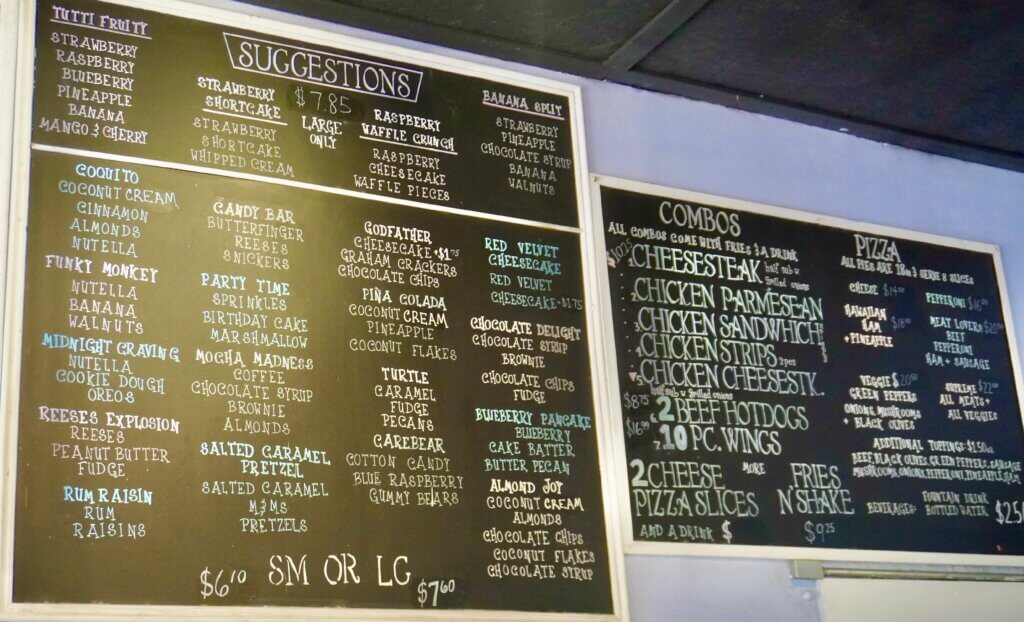 TUTTI FRUITY
STRAWBERRY
RASPBERRY
BLUEBERRY
PINEAPPLE
BANANA
MANGO & CHERRY
SUGGESTIONS
STRAWBERRY
SHORTCAKE
STRAWBERRY
SHORTCAKE
WHIPPED CREAM
$7.85
LARGE
ONLY
RASPBERRY
WAFFLE CRUNCH
RASPBERRY
CHEESECAKE
WAFFLE PIECES
BANANA SPLIT
STRAWBERRY
PINEAPPLE
CHOCOLATE SYRUP
BANANA
WALNUTS
COQUITO
COCONUT CREAM
CINNAMON
ALMONDS
NUTELLA
FUNKY MONKEY
NUTELLA
BANANA
WALNUTS
MIDNIGHT CRAVING
NUTELLA
COOKIE DOUGH
OREOS
REESES EXPLOSION
REESES
PEANUT BUTTER
FUDGE
RUM RAISIN
RUM
RAISINS
CANDY BAR
BUTTERFINGER
REESES
SNICKERS
PARTY TIME
SPRINKLES
BIRTHDAY CAKE
MARSHMALLOW
MOCHA MADNESS
COFFEE
CHOCOLATE SYRUP
BROWNIE
ALMONDS
SALTED CARAMEL
PRETZEL
SALTED CARAMEL
M&MS
PRETZELS
GODFATHER
CHEESECAKE +$1.75
GRAHAM CRACKERS
CHOCOLATE CHIPS
PIÑA COLADA
COCONUT CREAM
PINEAPPLE
COCONUT FLAKES
TURTLE
CARAMEL
FUDGE
PECANS
CAREBEAR
COTTON CANDY
BLUE RASPBERRY
GUMMY BEARS
RED VELVET
CHEESECAKE
RED VELVET
CHEESECAKE +$1.75
CHOCOLATE DELIGHT
CHOCOLATE SYRUP
BROWNIE
CHOCOLATE CHIPS
FUDGE
BLUEBERRY PANCAKE
BLUEBERRY
CAKE BATTER
BUTTER PECAN
ALMOND JOY
COCONUT CREAM
ALMONDS
CHOCOLATE CHIPS
COCONUT FLAKES
CHOCOLATE SYRUP
$6.10 SM OR LG $7.60
COMBOS
ALL COMBOS COME WITH FRIES & A DRINK
CHEESESTEAK half sub w. grilled onions
2. CHICKEN PARMESEAN
3. CHICKEN SANDWHICH
4. CHICKEN STRIPS
5. CHICKEN CHEESESTK.
half sub w/ grilled onions
$8.75 6. 2 BEEF HOTDOGS
$16.99 7. 10 PC. WINGS
2 CHEESE
PIZZA SLICES
AND A DRINK $
MORE
FRIES
N' SHAKE
$9.25
PIZZA
ALL PIES ARE 18in & SERVE 8 SLICES
CHEESE $14.00
HAWAIIAN
HAM
+ PINEAPPLE
VEGGIE $20.00
GREEN PEPPERS
ONIONS, MUSHROOMS
+ BLACK OLIVES
PEPPERONI
MEAT LOVERS
BEEF
PEPPERONI
HAM + SAUSAGE
SUPREME $22.00
ALL MEATS +
ALL VEGGIES
ADDITIONAL TOPPINGS $1.50
BEEF, BLACK OLIVES, GREEN PEPPERS, SAUSAGE
MUSHROOMS, ONIONS, PEPPERONI, PINEAPPLE, HAM
BEVERAGES- FOUNTAIN DRINK
BOTTLED WATER $2.50